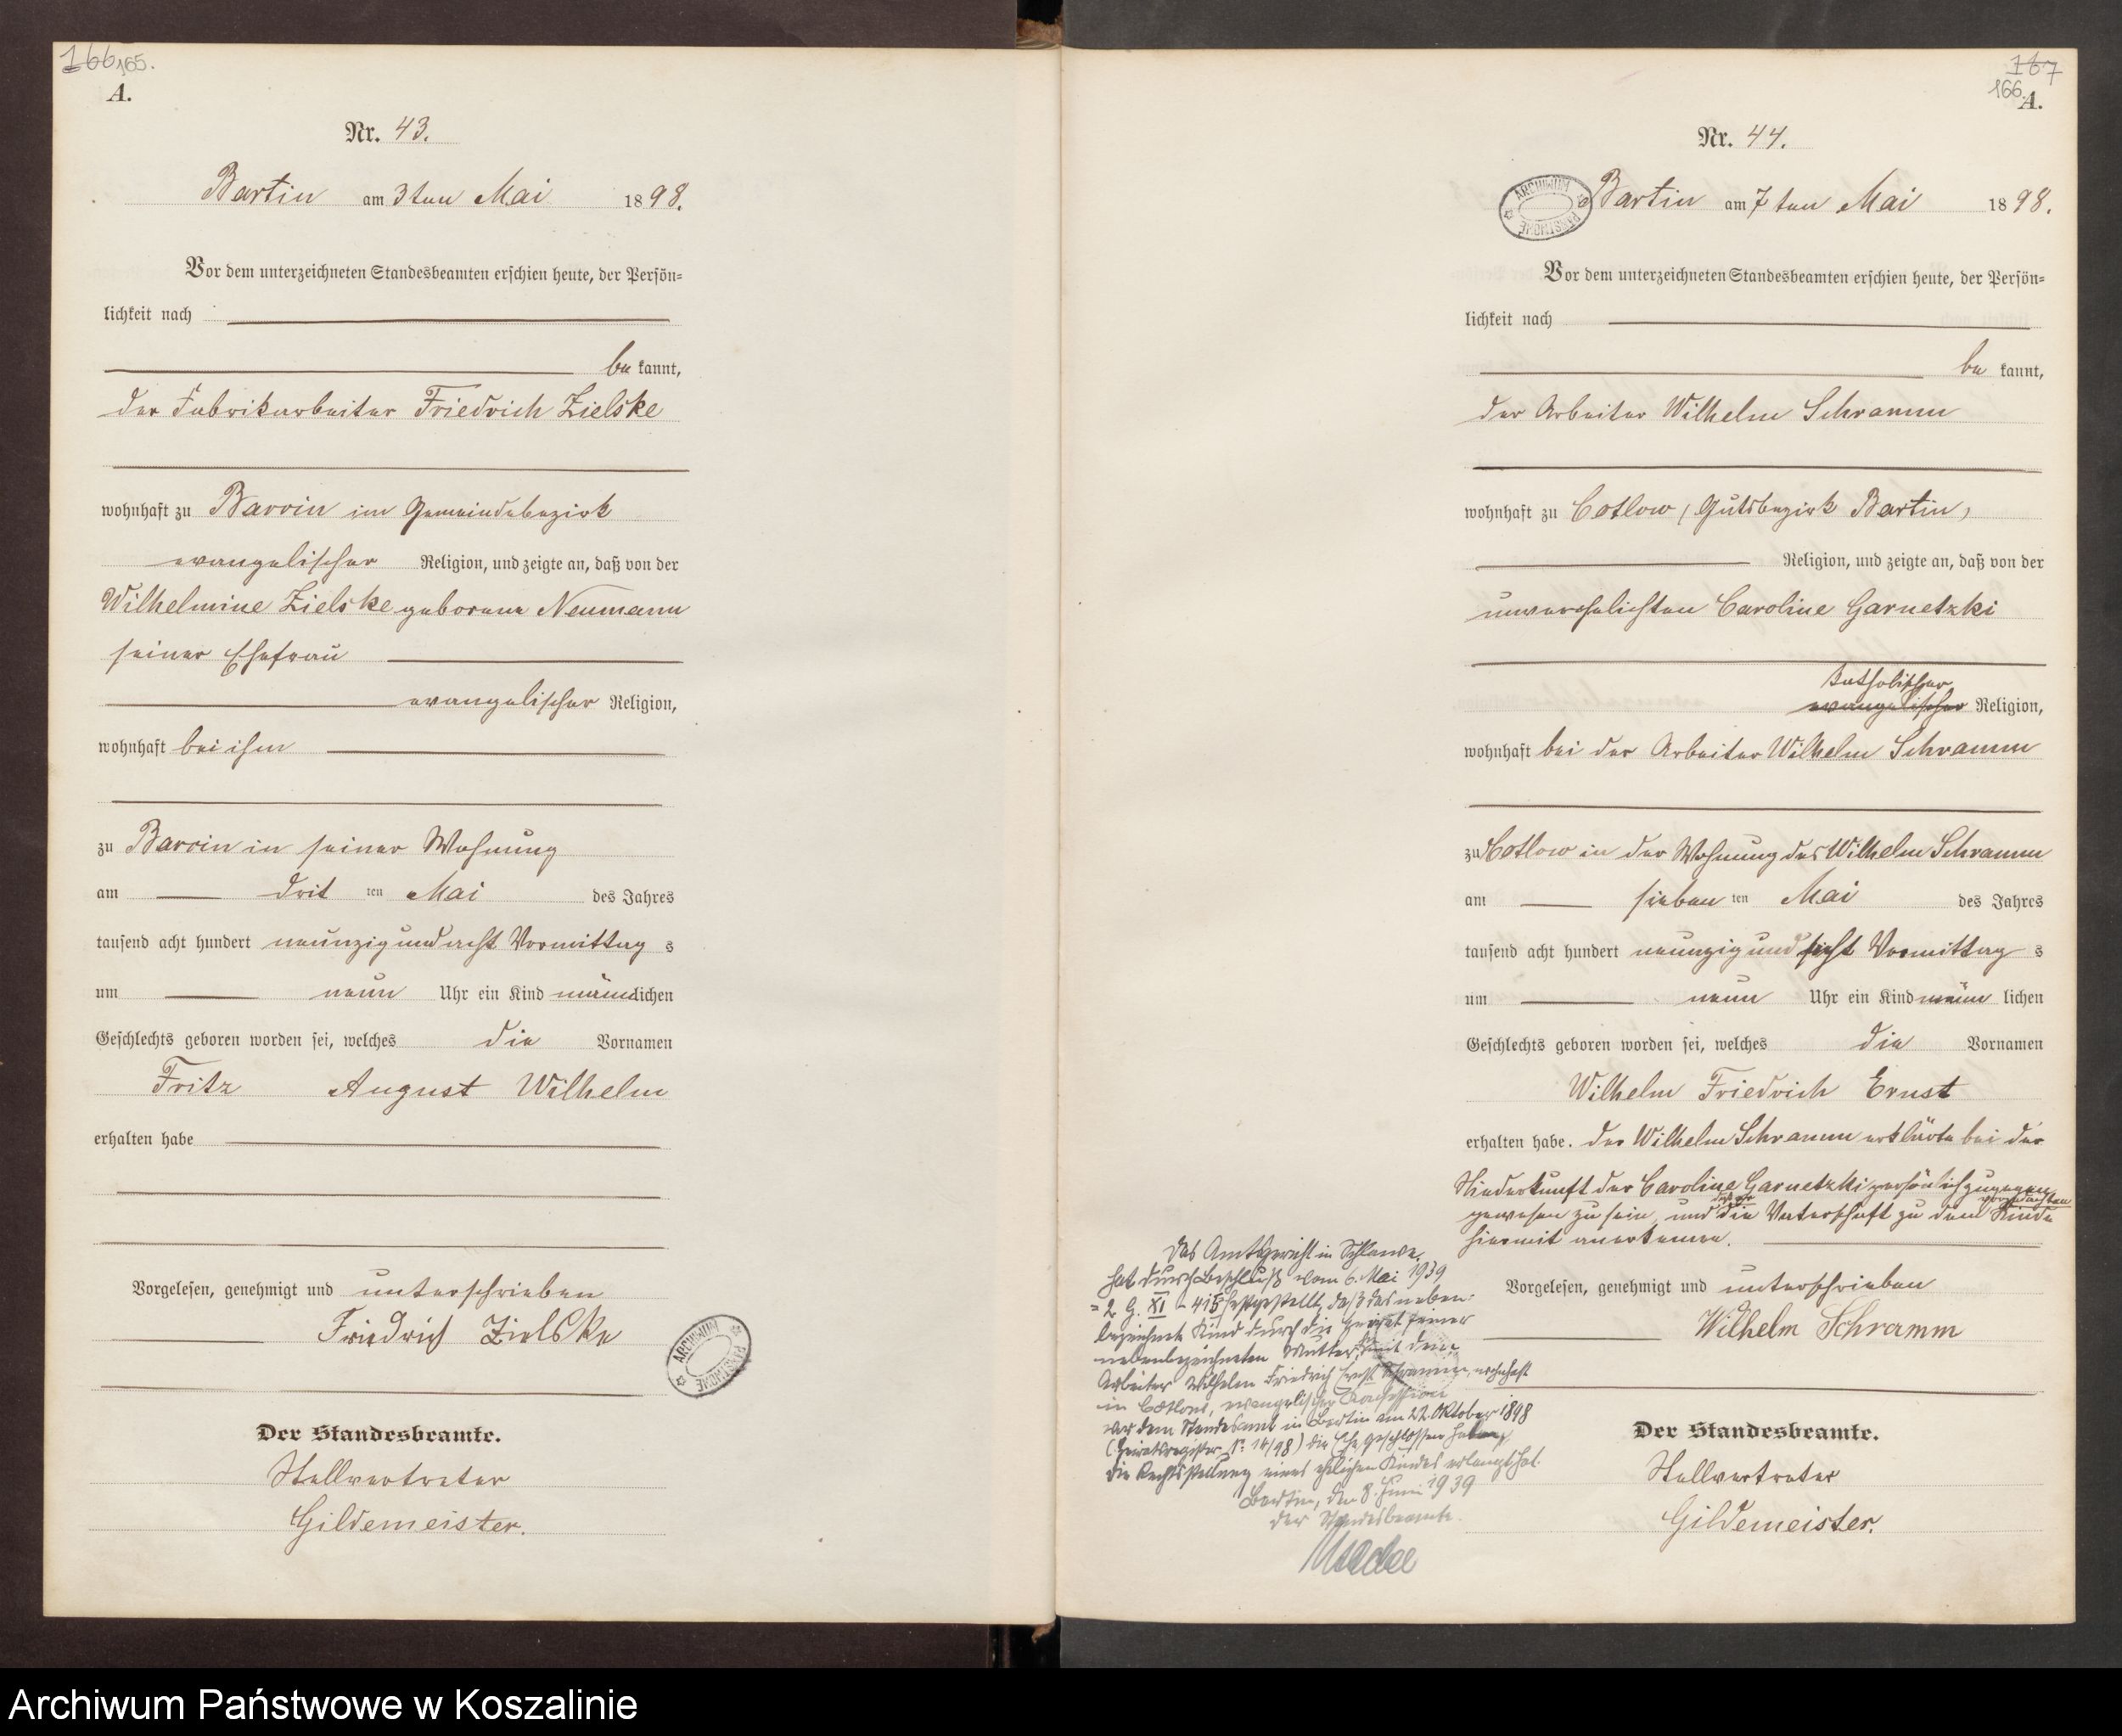 166 165.
A.
Nr. 43.
Bartin am 3ten Mai 1898.
Vor dem unterzeichneten Standesbeamten erschien heute, der Persön=
lichkeit nach
be kannt,
der Fabrikarbeiter Friedrich Zielske
wohnhaft zu Barvin im Gemeindebezirk
evangelischer Religion, und zeigte an, daß von der
Wilhelmine Zielske geborene Neumann
seiner Ehefrau
evangelischer Religion,
wohnhaft bei ihm
zu Barvin in seiner Wohnung
am drit ten Mai des Jahres
tausend acht hundert neunzig und acht Vormittag s
um neun Uhr ein Kind männlichen
Geschlechts geboren worden sei, welches die Vornamen
Fritz August Wilhelm
erhalten habe
Vorgelesen, genehmigt und unterschrieben
Friedrich Zielske
ARCHIWUM PAŃSTWOWE
Der Standesbeamte.
Stellvertreter
Gildemeister.
167
166.
A.
Nr. 44.
ARCHIWUM PAŃSTWOWE
Bartin am 7ten Mai 1898.
Vor dem unterzeichneten Standesbeamten erschien heute, der Persön=
lichkeit nach
be kannt,
der Arbeiter Wilhelm Schramm
wohnhaft zu Cotlow, Gutsbezirk Bartin,
Religion, und zeigte an, daß von der
unverehelichten Caroline Garnetzki
katholischer
evangelischer Religion,
wohnhaft bei der Arbeiter Wilhelm Schramm
zu Cotlow in der Wohnung des Wilhelm Schramm
am sieben ten Mai des Jahres
tausend acht hundert neunzig und acht Vormittag s
um neun Uhr ein Kind männ lichen
Geschlechts geboren worden sei, welches die Vornamen
Wilhelm Friedrich Ernst
erhalten habe. Der Wilhelm Schramm erklärte bei der
Niederkunft der Caroline Garnetzki persönlich zugegen
gewesen zu sein, und die Vaterschaft zu dem Kinde
hiermit anerkenne.
Das Amtsgericht in Schlawe
hat durch Beschluß vom 6. Mai 1939
= 2 G. XI festgestellt, daß das neben=
bezeichnete Kind durch die Heirat seiner
nebenbezeichneten Mutter mit dem
Arbeiter Wilhelm Friedrich Ernst Schramm, wohnhaft
in Cotlow, evangelischer Konfession
vor dem Standesamt in Bartin am 22. Oktober 1898
(Heiratsregister Nr. 14/98) die Ehe geschlossen haben,
die Rechtsstellung eines ehelichen Kindes erlangt hat.
Bartin, den 8. Juni 1939
Der Standesbeamte.
Vorgelesen, genehmigt und unterschrieben
Wilhelm Schramm
Der Standesbeamte.
Stellvertreter
Gildemeister.
Archiwum Państwowe w Koszalinie